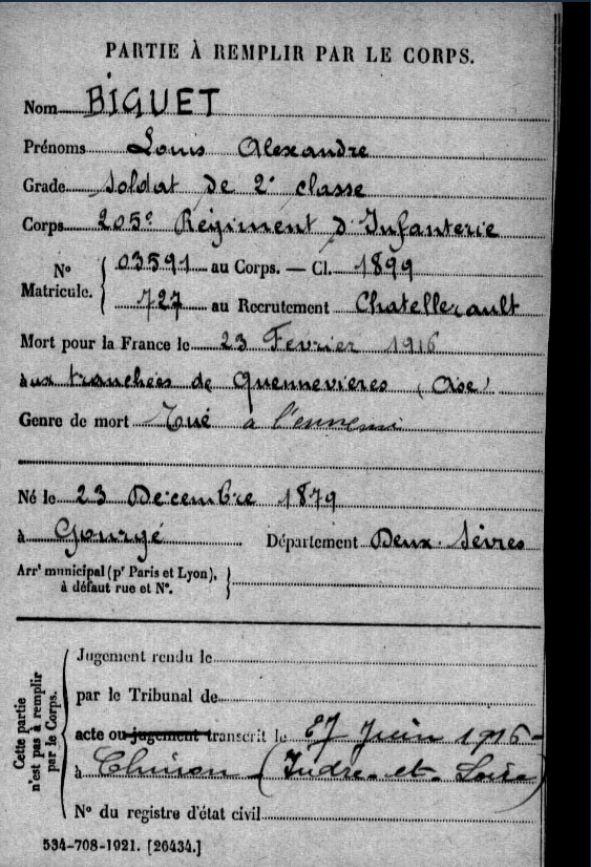 PARTIE À REMPLIR PAR LE CORPS.
Nom BIGUET
Prénoms Louis Alexandre
Grade Soldat de 2e classe
Corps 205e Régiment d'Infanterie
No Matricule. { 03591 au Corps. — Cl. 1899
727 au Recrutement Chatellerault
Mort pour la France le 23 Février 1916
aux tranchées de Quennevieres (Oise)
Genre de mort Tué à l'ennemi
Né le 23 Décembre 1879
à Gourgé Département Deux-Sèvres
Arrt municipal (pr Paris et Lyon), à défaut rue et No. }
Cette partie n'est pas à remplir par le Corps.
Jugement rendu le
par le Tribunal de
acte ou jugement transcrit le 27 Juin 1916
à Chinon (Indre-et-Loire)
No du registre d'état civil
534-708-1921. [26434.]